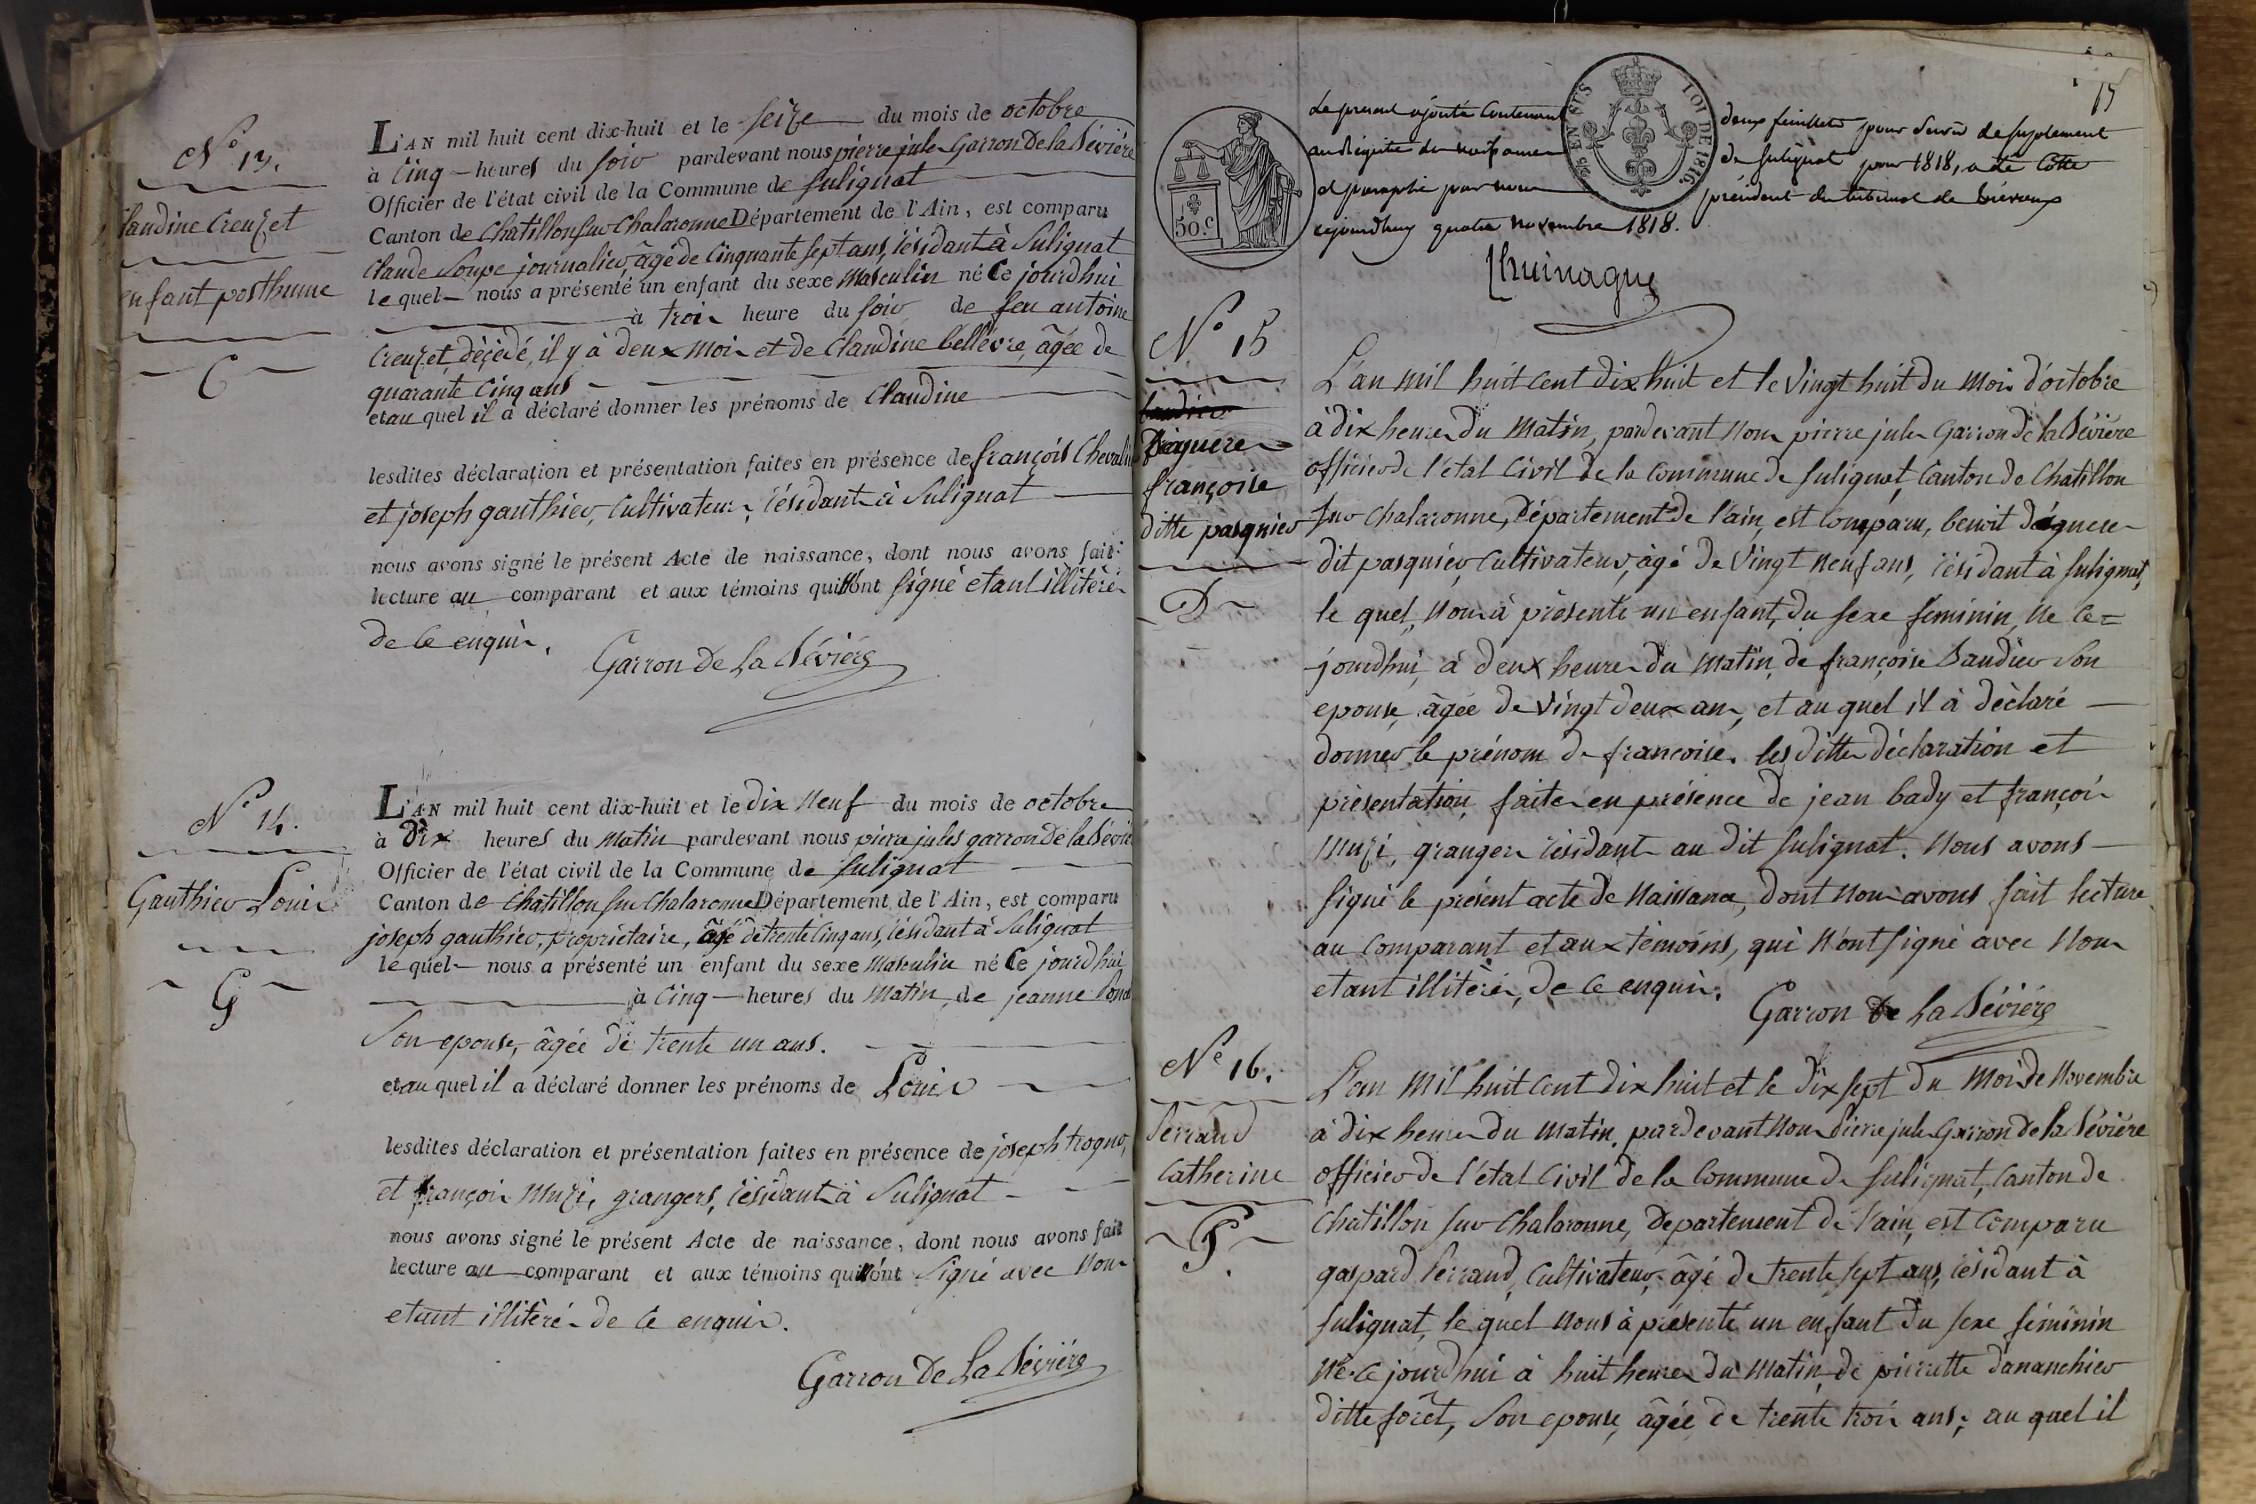 N.o 13.
Claudine Creuzet
enfant posthume
C
L'AN mil huit cent dix-huit et le seize du mois de octobre
à cinq heures du soir pardevant nous pierre jules Garron De la Sévière
Officier de l'état civil de la Commune de Sulignat
Canton de Chatillon sur Chalaronne Département de l'Ain, est comparu
Claude Soupe journalier, âgé de cinquante sept ans, résidant à Sulignat
lequel nous a présenté un enfant du sexe masculin né Ce jourdhui
à trois heure du soir de feu antoine
Creuzet, décédé, il y à deux mois et de Claudine bellevre, âgée de
quarante cinq ans
et au quel il a déclaré donner les prénoms de Claudine
lesdites déclaration et présentation faites en présence de françois Chevalier
et joseph gauthier, Cultivateurs, résidants à Sulignat
nous avons signé le présent Acte de naissance, dont nous avons fait
lecture au comparant et aux témoins qui n'ont signé etant illitérés
de ce enquis.
Garron De La Sévière
N.o 14.
Gauthier Louis
G
L'AN mil huit cent dix-huit et le dix neuf du mois de octobre
à Dix heures du Matin pardevant nous pierre jules garron De la Sévière
Officier de l'état civil de la Commune de Sulignat
Canton de Chatillon sur Chalaronne Département de l'Ain, est comparu
joseph gauthier, propriétaire, âgé de trente cinq ans, résidant à Sulignat
lequel nous a présenté un enfant du sexe masculin né Ce jourdhui
à Cinq heures du Matin, de jeanne
Son epouse, âgée de trente un ans.
et au quel il a déclaré donner les prénoms de Louis
lesdites déclaration et présentation faites en présence de joseph
et françois Muzi, grangers, résidants à Sulignat
nous avons signé le présent Acte de naissance, dont nous avons fait
lecture au comparant et aux témoins qui n'ont Signé avec Nous
etant illitérés de ce enquis.
Garron De La Sévière
15
50.C
LOI DE 1816.
Le present ajouté Contenant deux feuillets pour servir de supplement
au Régistre de naissances de Sulignat pour 1818, a été Cotté
et paraphé par nous président du tribunal de trévoux
cejourdhuy quatre novembre 1818.
N.o 15
françoise
ditte pasquier
D
L'an mil huit cent dix huit et le Vingt huit du Mois d'octobre
à dix heures du Matin, pardevant Nous pierre jules Garron De la Sévière
officier de l'état Civil de la Commune de Sulignat, Canton de Chatillon
sur Chalaronne, Département de l'ain, est Comparu, benoit
dit pasquier, Cultivateur, âgé de Vingt neuf ans, résidant à Sulignat,
le quel, Nous à présenté un enfant, du sexe féminin, Né Ce=
jourdhui, à deux heures du Matin, de françoise Son
epouse, âgée de Vingt deux ans, et au quel il à déclaré
donner le prénom de francoise. les dittes déclaration et
présentation, faites en présence de jean bady et françois
Muzi, grangers résidants au dit Sulignat. Nous avons
signé le présent acte de Naissance, dont Nous avons fait lecture
au Comparant et aux témoins, qui N'ont Signé avec Nous
etant illitérés, de Ce enquis.
Garron De La Sévière
N.o 16.
Catherine
L'an Mil huit Cent Dix huit et le Dix sept du Mois de Novembre
à dix heures du Matin, pardevant Nous Pierre jules Garron De la Sévière
officier de l'état Civil de la Commune de Sulignat, Canton de
Chatillon sur Chalaronne, Departement de l'ain, est Comparu
gaspard Cultivateur, âgé de trente sept ans, résidant à
Sulignat, le quel Nous à présenté un enfant Du sexe féminin
Né Ce jourdhui à huit heures Du Matin, de pierrette Dananchier
Ditte forêt, Son epouse, âgée de trente trois ans, au quel il